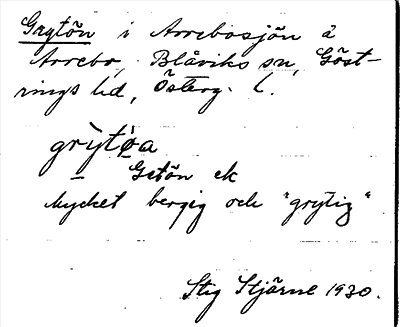 Grytön i Arrebosjön å
Arrebo, Blåviks sn, Göst-
rings hd, Österg. l.
grỳtø̀a
— Getön ek
Mycket bergig och "grytig"
Stig Stjärne 1930.